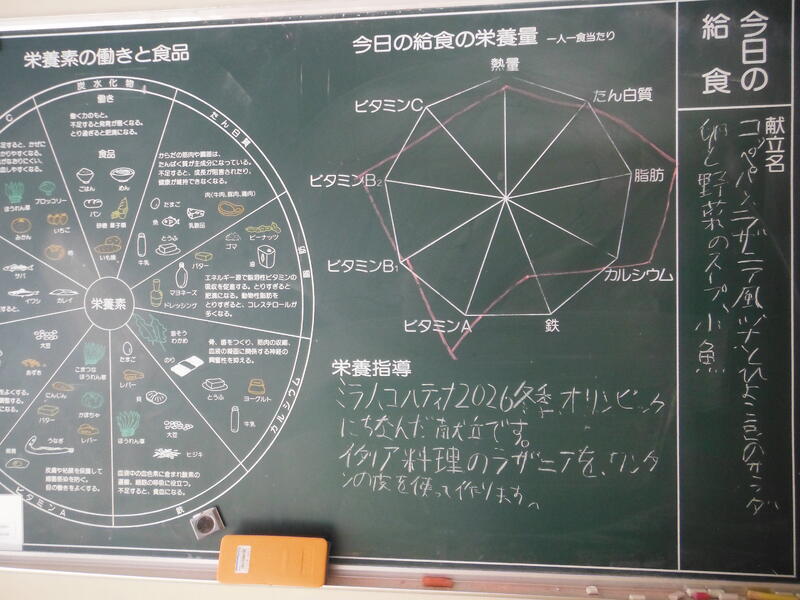 栄養素の働きと食品
炭水化物
働き
働く力のもと。
不足すると発育が悪くなる。
とり過ぎると肥満になる。
食品
ごはん
めん
パン
砂糖 菓子類
いも類
たん白質
からだの筋肉や臓器は、
たんぱく質が主成分になっている。
不足すると、成長が阻害されたり、
健康が維持できなくなる。
肉(牛肉、豚肉、鶏肉)
たまご
魚
乳製品
とうふ
牛乳
脂肪
ピーナッツ
ゴマ
油
バター
マヨネーズ
ドレッシング
エネルギー源で脂溶性ビタミンの
吸収を促進する。とりすぎると
肥満になる。動物性脂肪を
とりすぎると、コレステロールが
多くなる。
カルシウム
骨、歯をつくり、筋肉の収縮、
血液の凝固に関係する神経の
興奮性を抑える。
わかめ
のり
とうふ
ヨーグルト
牛乳
鉄
たまご
レバー
貝
ほうれん草
大豆
ヒジキ
血液中の血色素に含まれ酸素の
運搬、細胞の呼吸に役立つ。
不足すると、貧血になる。
ビタミンA
こまつな
ほうれん草
にんじん
かぼちゃ
バター
レバー
うなぎ
皮膚や粘膜を保護して
細菌感染を防ぐ。
目の働きをよくする。
大豆
あずき
サバ
イワシ
カレイ
ほうれん草
ブロッコリー
みかん
いちご
柿
C
栄養素
今日の給食の栄養量 一人一食当たり
熱量
たん白質
脂肪
カルシウム
鉄
ビタミンA
ビタミンB1
ビタミンB2
ビタミンC
栄養指導
ミラノコルティナ2026冬季オリンピック
にちなんだ献立です。
イタリア料理のラザニアを、ワンタ
ンの皮を使って作ります。
今日の
給食
献立名
コッペパン、ラザニア風、ツナとひよこ豆のサラダ
卵と野菜のスープ、小魚